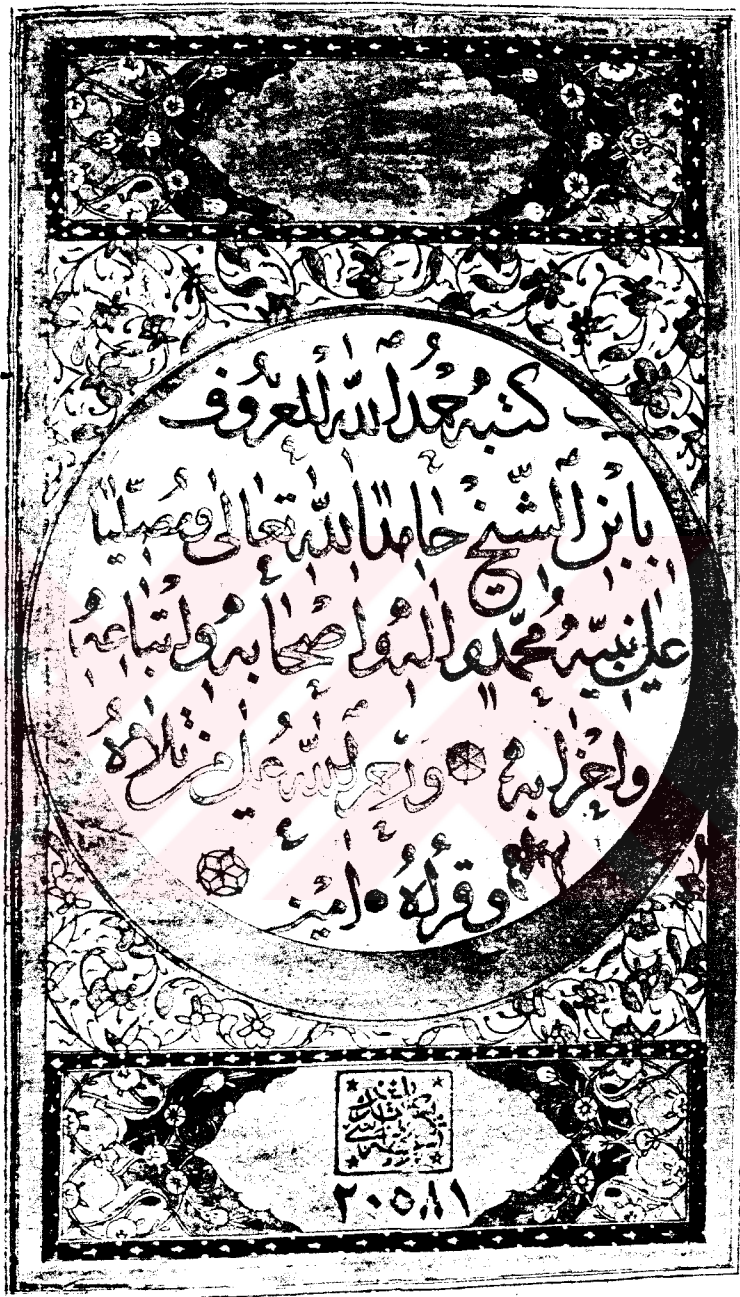 كتبه حمد الله المعروف
بابن الشيخ حامدا لله تعالى ومصليا
على نبيه محمد واله واصحابه واتباعه
واحزابه وعز الله على من تلاوه
وقراه امين
٢٠٥٨١